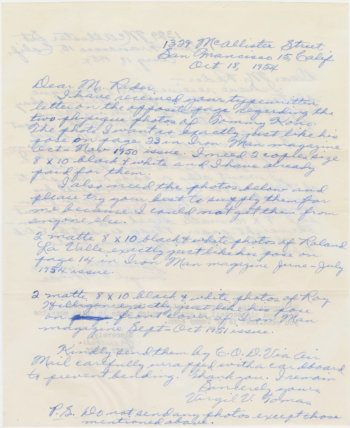 1329 McAllister Street,
San Francisco 15, Calif.
Oct 18, 1954
Dear Mr. Rader,
I have received your typewritten
letter on the opposite page. Regarding the
two physique photos of Tommy
The photo I want is exactly just like his
pose on page 33 in Iron Man magazine
Nov 1950 issue. I need 2 copies size
8 x 10 black & white and I have already
paid for them.
I also need the photos below and
please try your best to supply them for
me because I could not get them from
anyone else.
2 matte 8 x 10 black & white photos of Roland
La Valle exactly just like his pose on
page 14 in Iron Man magazine June-July
1954 issue.
2 matte, 8 x 10 black & white photos of Roy
Hilligenn exactly just like his pose
on front cover of Iron Man
magazine Sept-Oct 1951 issue.
Kindly send them by C.O.D. Via Air
Mail carefully wrapped with a cardboard
to prevent bending. Thank you. I remain
Sincerely yours,
Virgil V.
P.S. Do not send any photos except those
mentioned above.